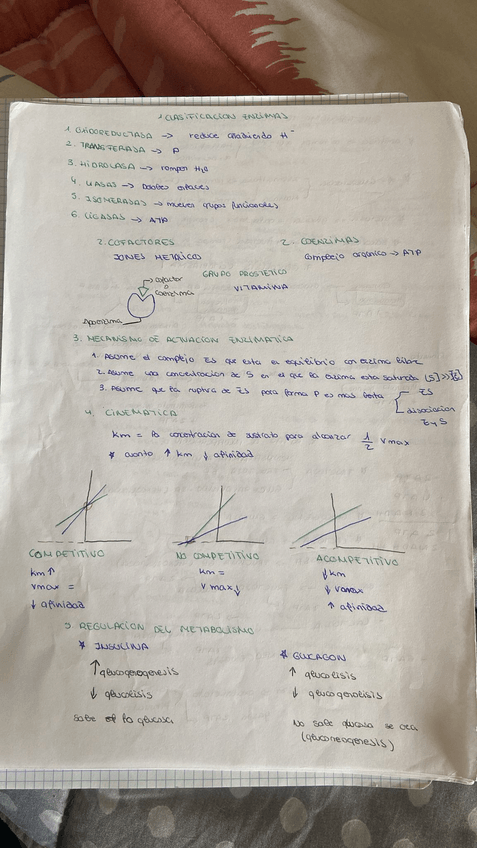 1 CLASIFICACION ENZIMAS
1 OXIDOREDUCTASA → reduce añadiendo H⁻
2. TRANSFERASA → P
3. HIDROLASA → romper H₂O
4. LIASAS → Dobles enlaces
5. ISOMERASAS → mueves grupos funcionales
6. LIGASAS → ATP
2. COFACTORES
IONES METALICOS
2. COENZIMAS
Complejo organico → ATP
GRUPO PROSTETICO
VITAMINA
cofactor
o
Coenzima
Apoenzima
3. MECANISMO DE ACTUACION ENZIMATICA
1. Asume el complejo ES que esta en equilibrio con enzima libre
2. Asume una concentracion de S en el que la enzima esta saturada [S]>>[E]
3. Asume que la ruptura de ES para forma P es mas lenta
ES
disociacion
E y S
4. CINEMATICA
Km = la concentracion de sustrato para alcanzar 1/2 Vmax
* cuanto ↑ km ↓ afinidad
COMPETITIVO
Km ↑
Vmax =
↓ afinidad
NO COMPETITIVO
Km =
V max ↓
ACOMPETITIVO
↓ Km
↓ Vmax
↑ afinidad
5 REGULACION DEL METABOLISMO
* INSULINA
↑ glucogenogenesis
↓ glucolisis
Sabe la glucosa
* GLUCAGON
↑ glucolisis
↓ glucogenolisis
No sabe glucosa se crea
(gluconeogenesis)